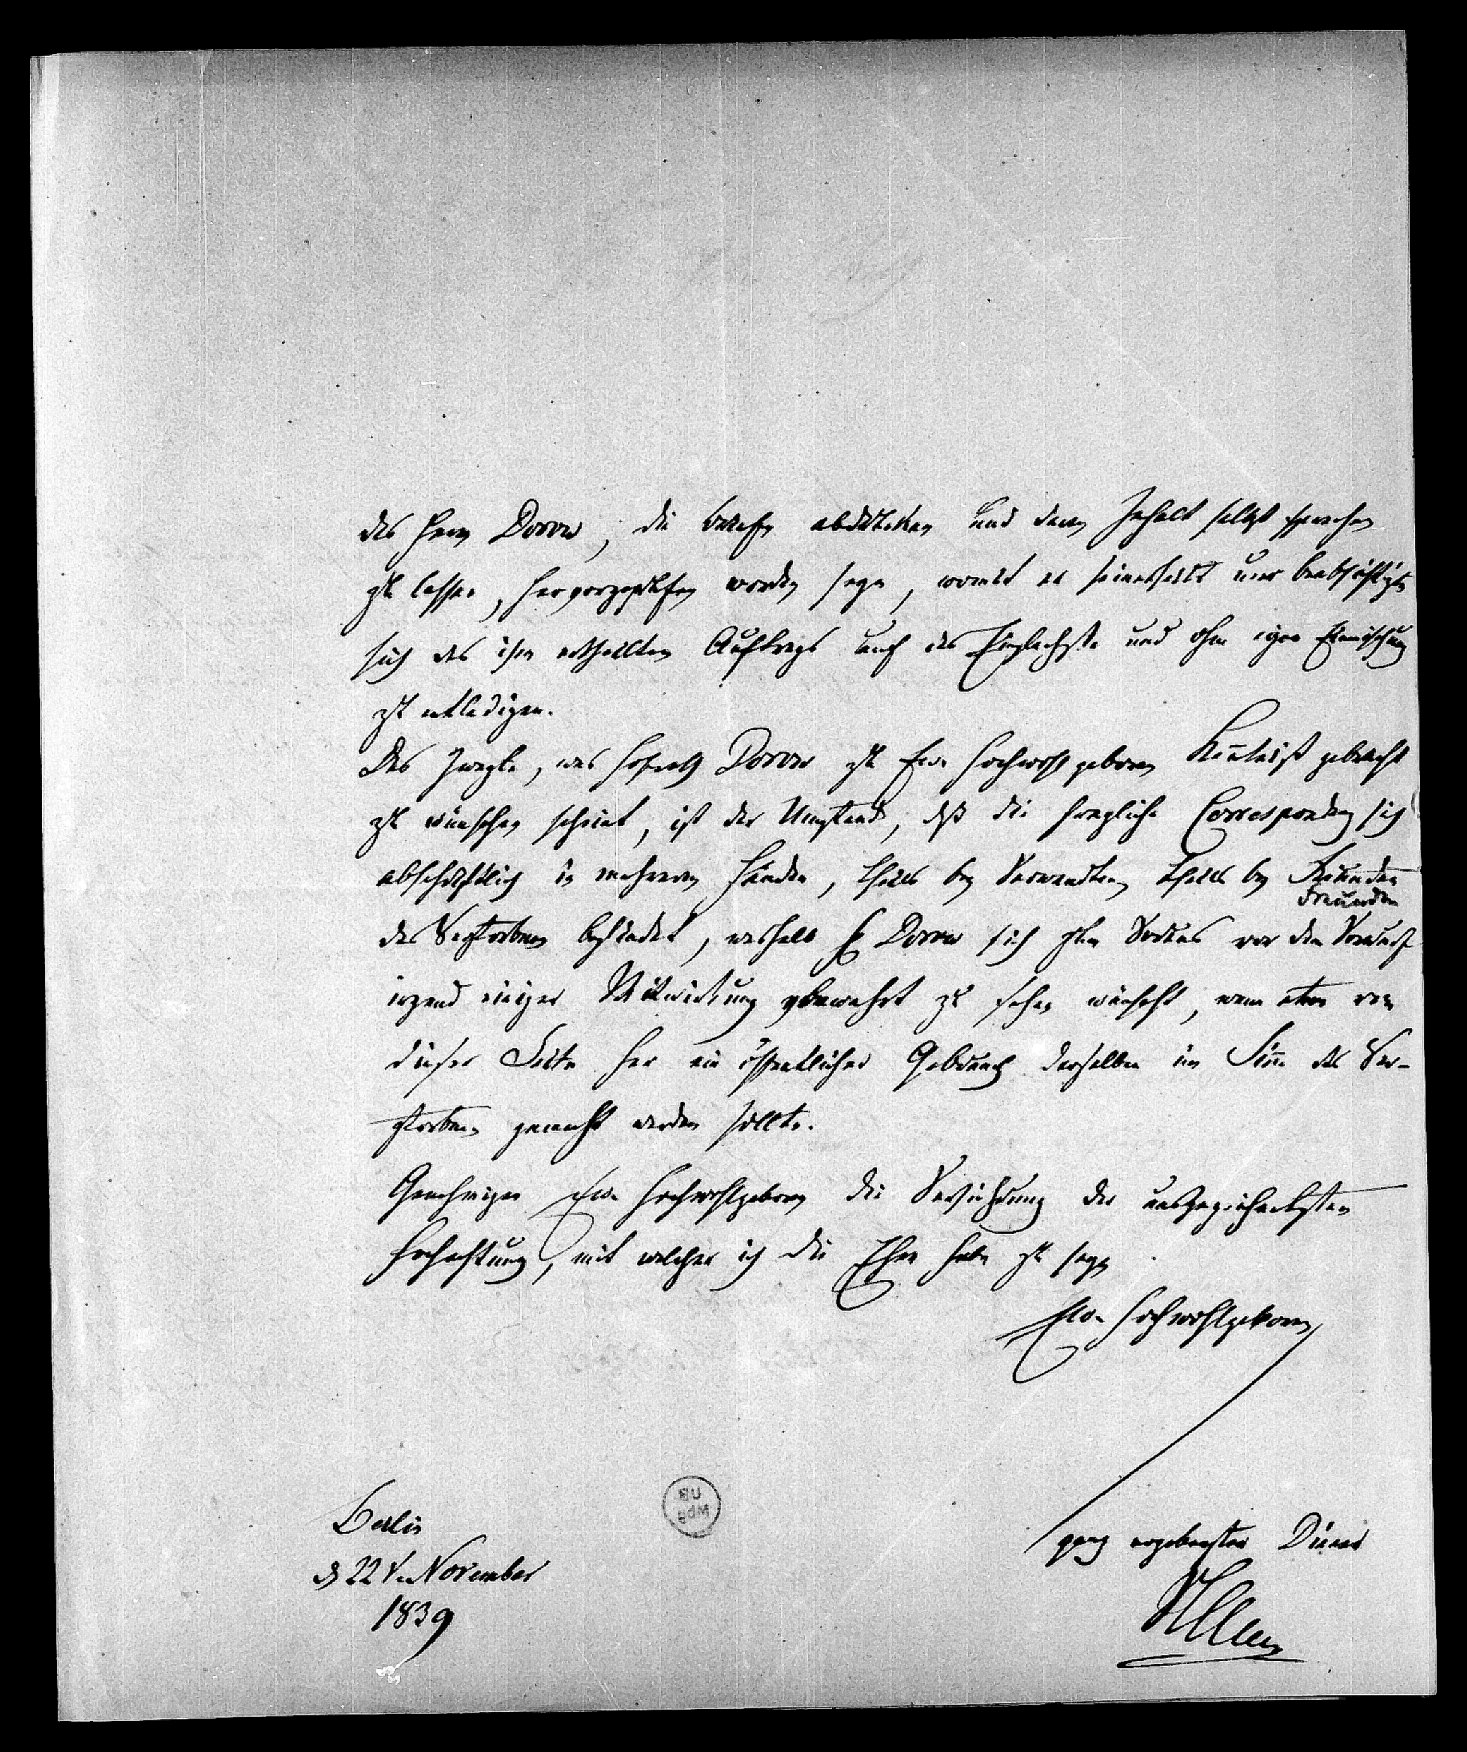 des Herrn Dorow, die Briefe abdrucken und deren Inhalt selbst sprechen
zu lassen, hervorgegangen worden sey, womit er seinerseits nur beabsichtigte
sich des ihm ertheilten Auftrags auf das Einfachste und ohne eigne Einmischung
zu entledigen.
Das Zweyte, was Hofrath Dorow zu Euer Hochwohlgeboren Kenntniß gebracht
zu wünschen scheint, ist der Umstand, daß die fragliche Correspondenz sich
abschriftlich in mehreren Händen, theils bey Verwandten theils bey Freunden
Freunden
des Verstorbenen befindet, weshalb H Dorow sich zum Voraus vor dem Vorwurf
irgend einiger Mitwirkung bewahrt zu sehen wünscht, wenn etwa von
dieser Seite her ein öffentlicher Gebrauch derselben im Sinne des Ver-
storbenen gemacht werden sollte.
Genehmigen Euer Hochwohlgeboren die Versicherung der ausgezeichnetsten
Hochachtung, mit welcher ich die Ehre habe zu seyn
Euer Hochwohlgeboren
ganz ergebenster Diener
Berlin
d 22 t. November
1839